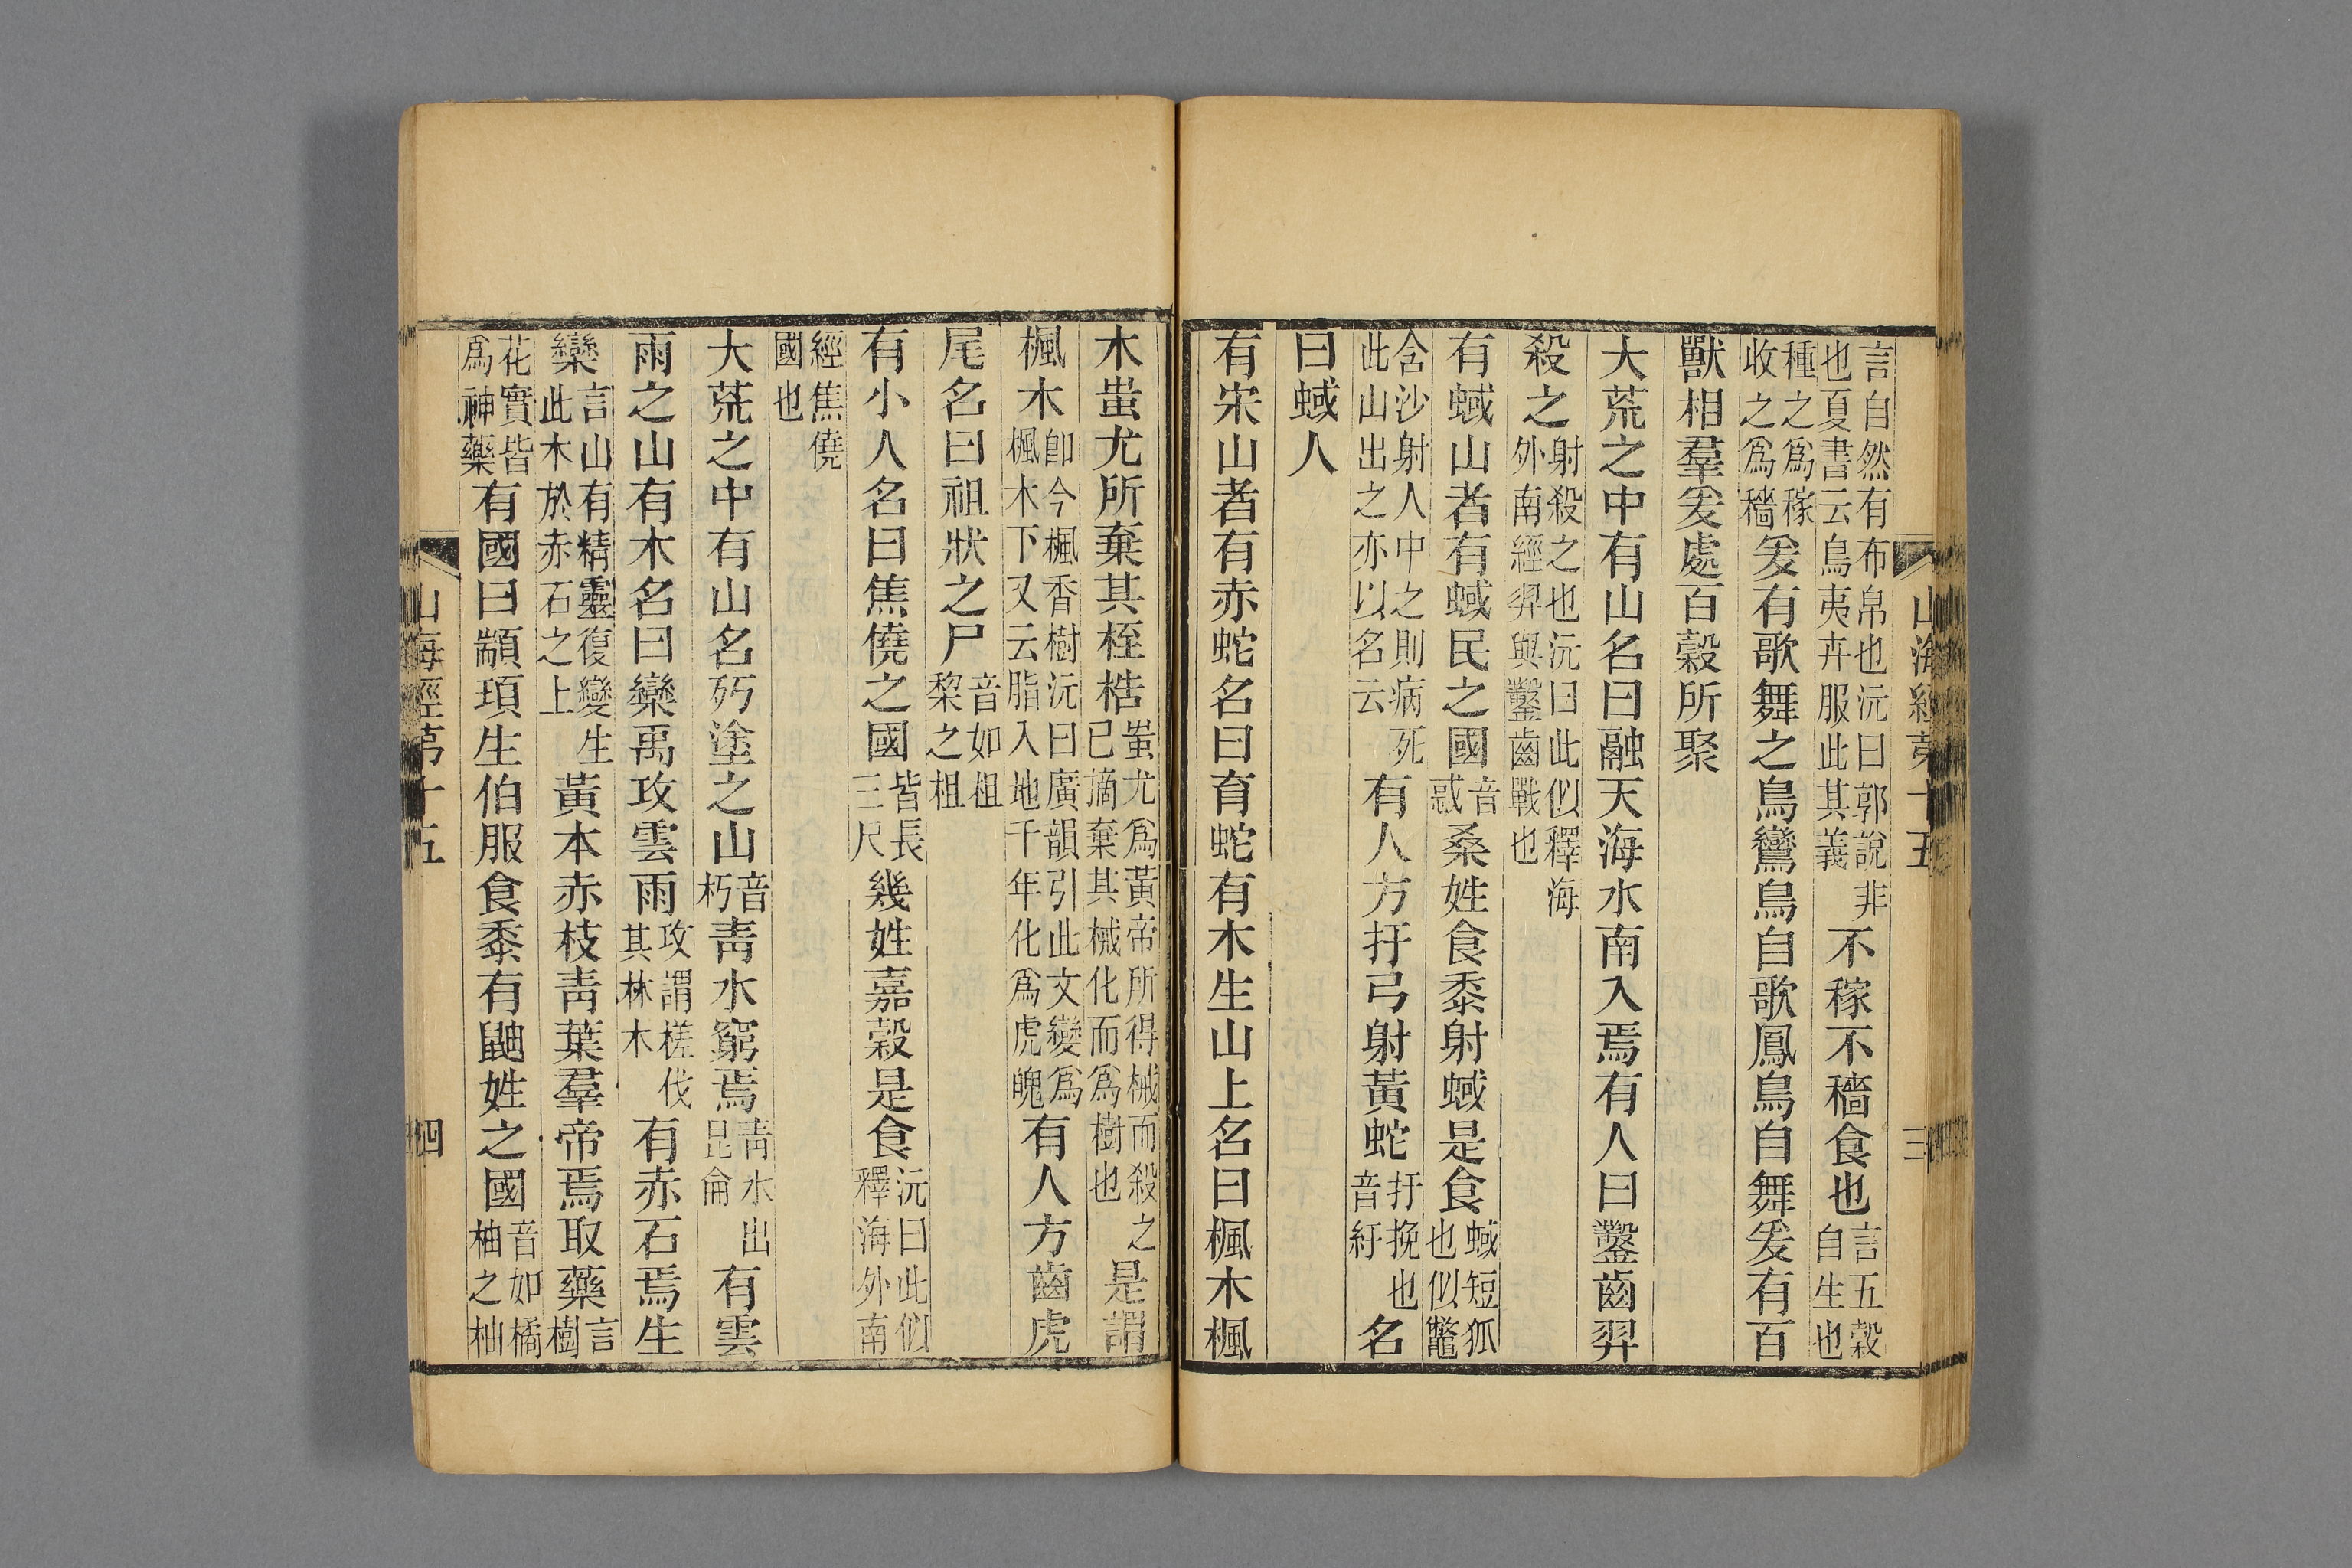 山海經第十五 三
言自然有布帛也沅曰郭說非也夏書云鳥夷卉服此其義不稼不穡食也言五穀自生也
種之爲稼收之爲穡爰有歌舞之鳥鸞鳥自歌鳳鳥自舞爰有百
獸相羣爰處百穀所聚
大荒之中有山名曰融天海水南入焉有人曰鑿齒羿
殺之射殺之也沅曰此似釋海外南經羿與鑿齒戰也
有蜮山者有蜮民之國音惑桑姓食黍射蜮是食蜮短狐也似鼈
含沙射人中之則病死此山出之亦以名云有人方扜弓射黃蛇扜挽也音紆名
曰蜮人
有宋山者有赤蛇名曰育蛇有木生山上名曰楓木楓
木蚩尤所棄其桎梏蚩尤爲黃帝所得械而殺之已摘棄其械化而爲樹也是謂
楓木卽今楓香樹沅曰廣韻引此文變爲楓木下又云脂入地千年化爲虎魄有人方齒虎
尾名曰祖狀之尸音如柤棃之柤
有小人名曰焦僥之國皆長三尺幾姓嘉穀是食沅曰此似釋海外南
經焦僥國也
大荒之中有山名㱙塗之山音朽靑水窮焉靑水出昆侖有雲
雨之山有木名曰欒禹攻雲雨攻謂槎伐其林木有赤石焉生
欒言山有精靈復變生此木於赤石之上黃本赤枝靑葉羣帝焉取藥言樹
花實皆爲神藥有國曰顓頊生伯服食黍有鼬姓之國音如橘柚之柚
山海經第十五 四